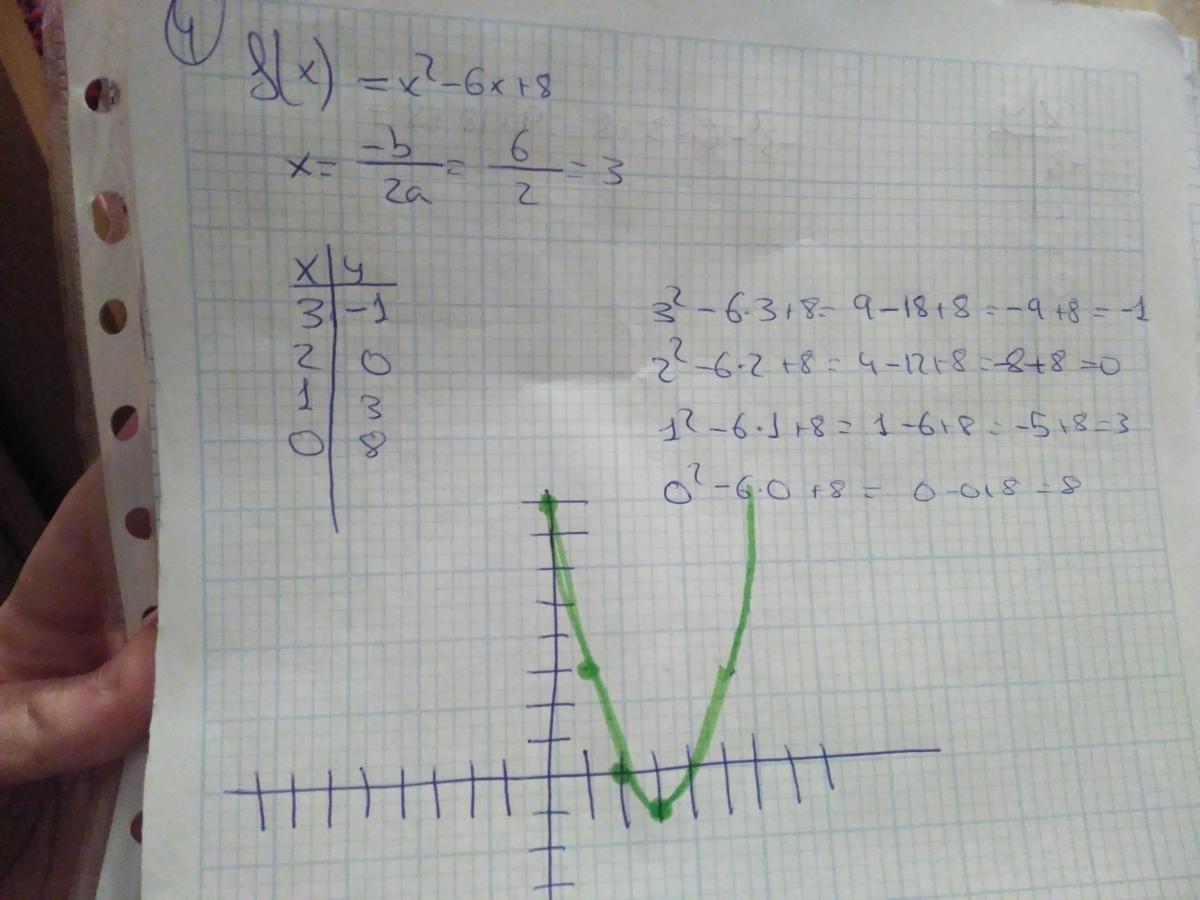 4
f(x) = x² - 6x + 8
x = -b/2a = 6/2 = 3
x | y
3 | -1
2 | 0
1 | 3
0 | 8
3² - 6·3 + 8 = 9 - 18 + 8 = -9 + 8 = -1
2² - 6·2 + 8 = 4 - 12 + 8 = -8 + 8 = 0
1² - 6·1 + 8 = 1 - 6 + 8 = -5 + 8 = 3
0² - 6·0 + 8 = 0 - 0 + 8 = 8